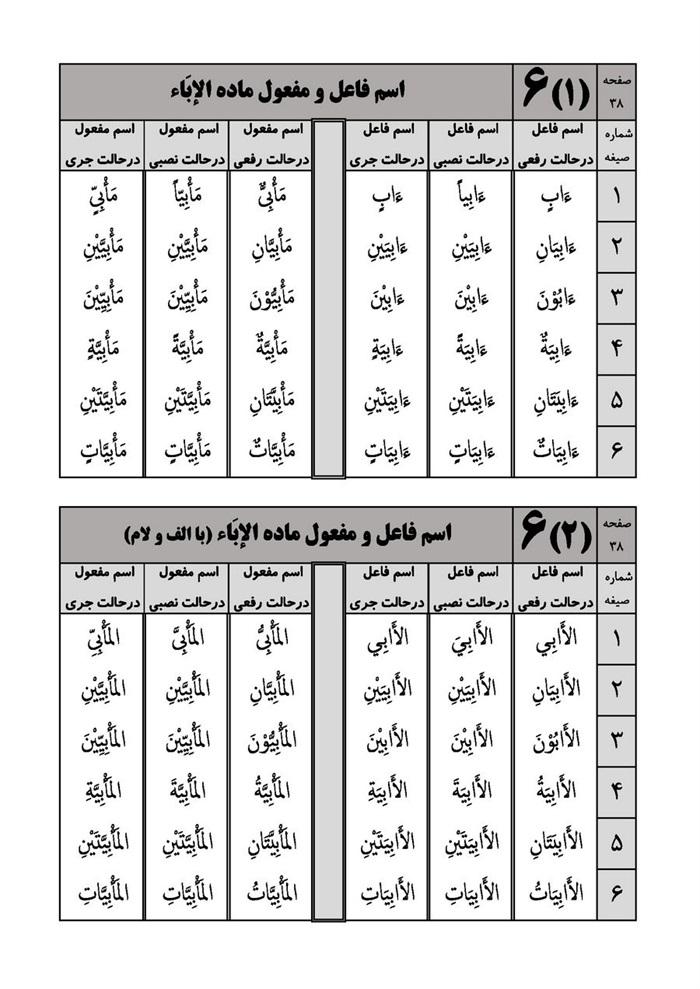 صفحه ۳۸ ۶(۱) اسم فاعل و مفعول ماده الإبَاء
شماره صیغه اسم فاعل درحالت رفعی اسم فاعل درحالت نصبی اسم فاعل درحالت جری اسم مفعول درحالت رفعی اسم مفعول درحالت نصبی اسم مفعول درحالت جری
۱ ءَابٍ ءَابِیاً ءَابٍ مَأْبِیٌّ مَأْبِیّاً مَأْبِیٍّ
۲ ءَابِیَانِ ءَابِیَیْنِ ءَابِیَیْنِ مَأْبِیَّانِ مَأْبِیَّیْنِ مَأْبِیَّیْنِ
۳ ءَابُوْنَ ءَابِیْنَ ءَابِیْنَ مَأْبِیُّوْنَ مَأْبِیِّیْنَ مَأْبِیِّیْنَ
۴ ءَابِیَةٌ ءَابِیَةً ءَابِیَةٍ مَأْبِیَّةٌ مَأْبِیَّةً مَأْبِیَّةٍ
۵ ءَابِیَتَانِ ءَابِیَتَیْنِ ءَابِیَتَیْنِ مَأْبِیَّتَانِ مَأْبِیَّتَیْنِ مَأْبِیَّتَیْنِ
۶ ءَابِیَاتٌ ءَابِیَاتٍ ءَابِیَاتٍ مَأْبِیَّاتٌ مَأْبِیَّاتٍ مَأْبِیَّاتٍ
صفحه ۳۸ ۶(۲) اسم فاعل و مفعول ماده الإبَاء (با الف و لام)
شماره صیغه اسم فاعل درحالت رفعی اسم فاعل درحالت نصبی اسم فاعل درحالت جری اسم مفعول درحالت رفعی اسم مفعول درحالت نصبی اسم مفعول درحالت جری
۱ الأَابِي الأَابِيَ الأَابِي المَأْبِیُّ المَأْبِیَّ المَأْبِیِّ
۲ الأَابِیَانِ الأَابِیَیْنِ الأَابِیَیْنِ المَأْبِیَّانِ المَأْبِیَّیْنِ المَأْبِیَّیْنِ
۳ الأَابُوْنَ الأَابِیْنَ الأَابِیْنَ المَأْبِیُّوْنَ المَأْبِیِّیْنَ المَأْبِیِّیْنَ
۴ الأَابِیَةُ الأَابِیَةَ الأَابِیَةِ المَأْبِیَّةُ المَأْبِیَّةَ المَأْبِیَّةِ
۵ الأَابِیَتَانِ الأَابِیَتَیْنِ الأَابِیَتَیْنِ المَأْبِیَّتَانِ المَأْبِیَّتَیْنِ المَأْبِیَّتَیْنِ
۶ الأَابِیَاتُ الأَابِیَاتِ الأَابِیَاتِ المَأْبِیَّاتُ المَأْبِیَّاتِ المَأْبِیَّاتِ